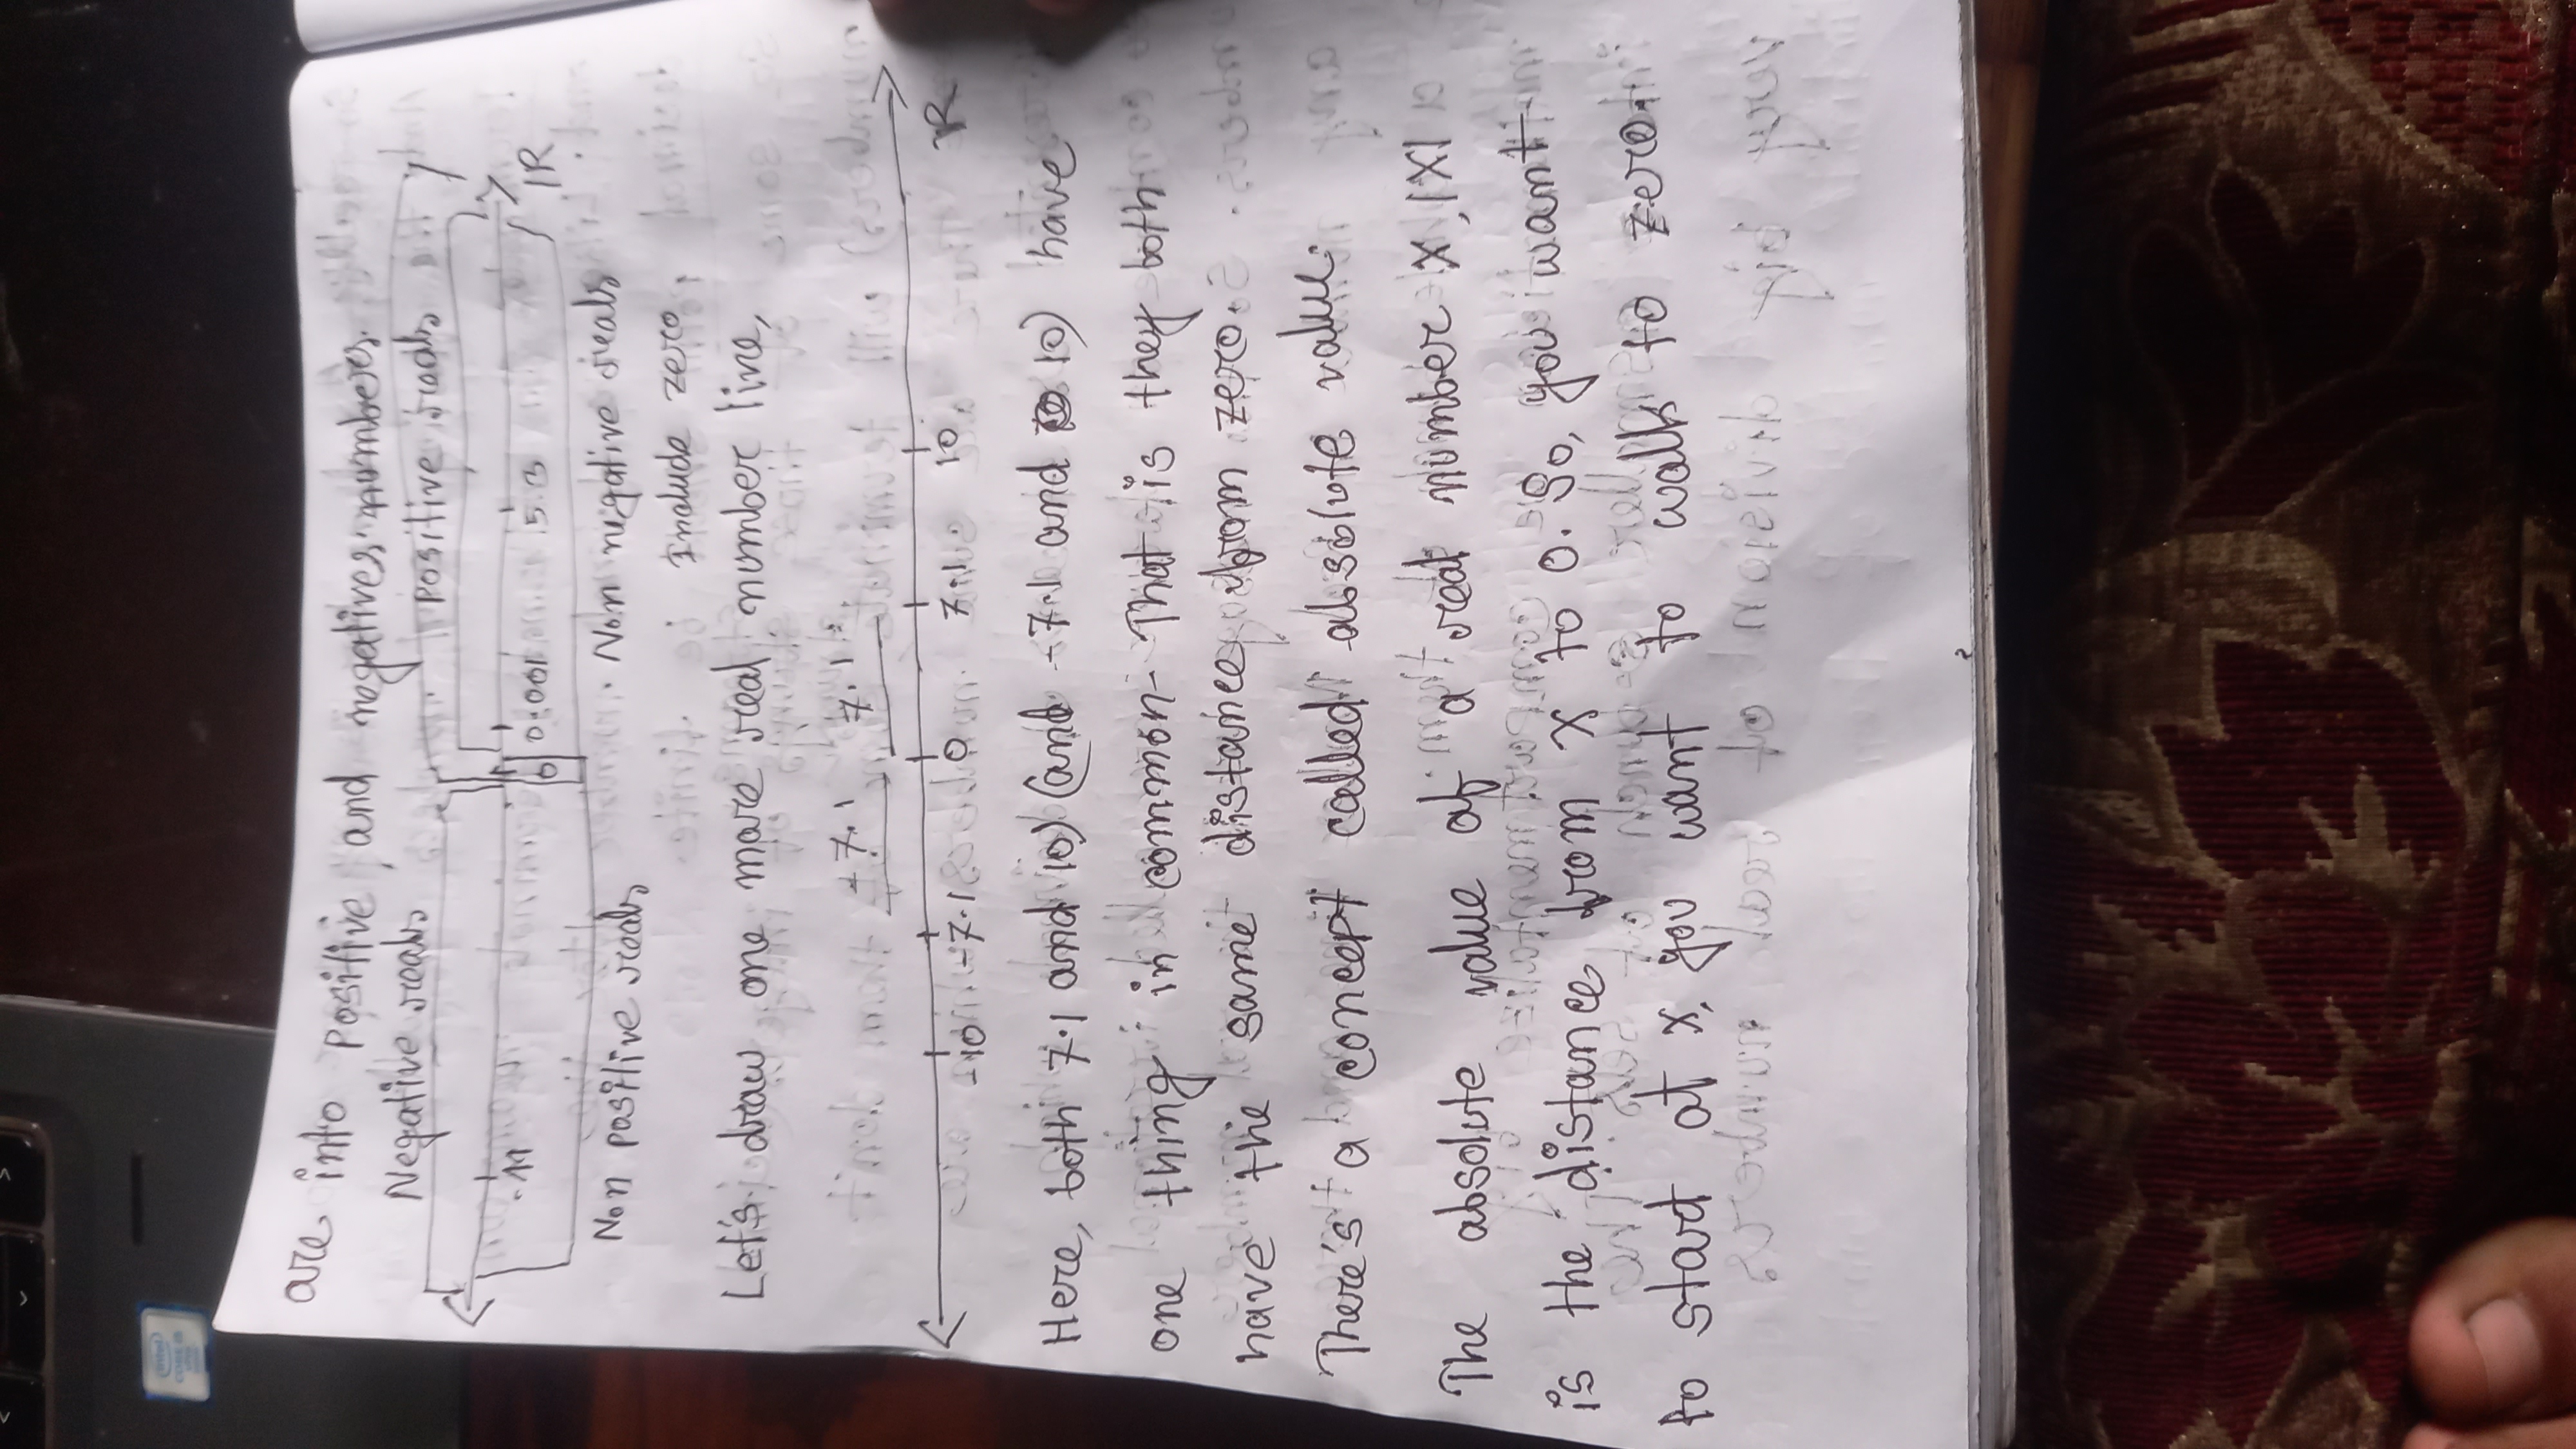 intel
CORE i5
vPro
are into positive and negatives numbers.
Negative reals
positive reals
-11
0
0.001
5.3
IR
Non positive reals
Non negative reals
Include zero.
Let's draw one more real number line,
7.1
7.1
-10
-7.1
0
7.1
10
IR
Here, both 7.1 and 10) (and -7.1 and 10) have
one thing in common- That is they both
have the same distance from zero.
There's a concept called absolute value.
The absolute value of a real number x, |x|
is the distance from x to 0. So, you want
to start at x, you want to walk to zero.